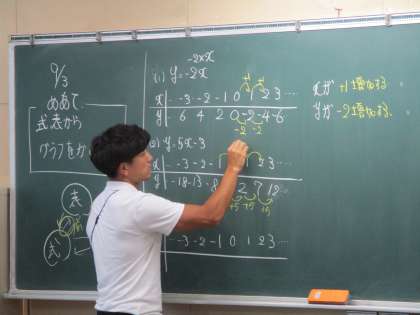 9/3
めあて
式 表から
グラフをか
表
式
-2×x
(1) y=-2x
x ‥ -3 -2 -1 0 1 2 3 ‥
y ‥ 6 4 2 0 -2 -4 -6
-2 -2
(2) y=5x-3
x ‥ -3 -2 -1 1 2 3 ‥
y ‥ -18 -13 -8 2 7 12 ‥
+5 +5 +5
‥ -3 -2 -1 0 1 2 3 ‥
xが +1 増加する
yが -2 増加する